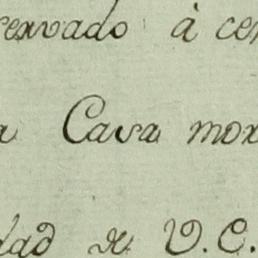 servado à cer
a Casa mor
dad de V. C.